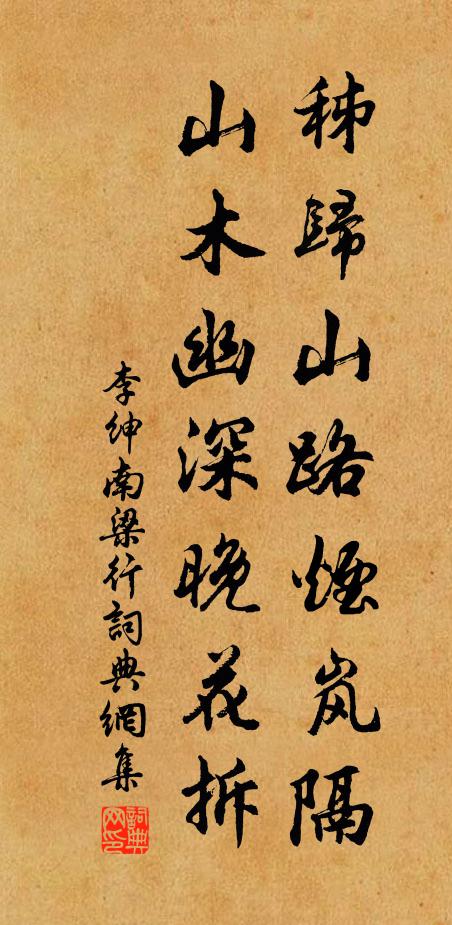 秭歸山路煙岚隔
山木幽深晚花拆
李紳南梁行詞典網集
詞典网印